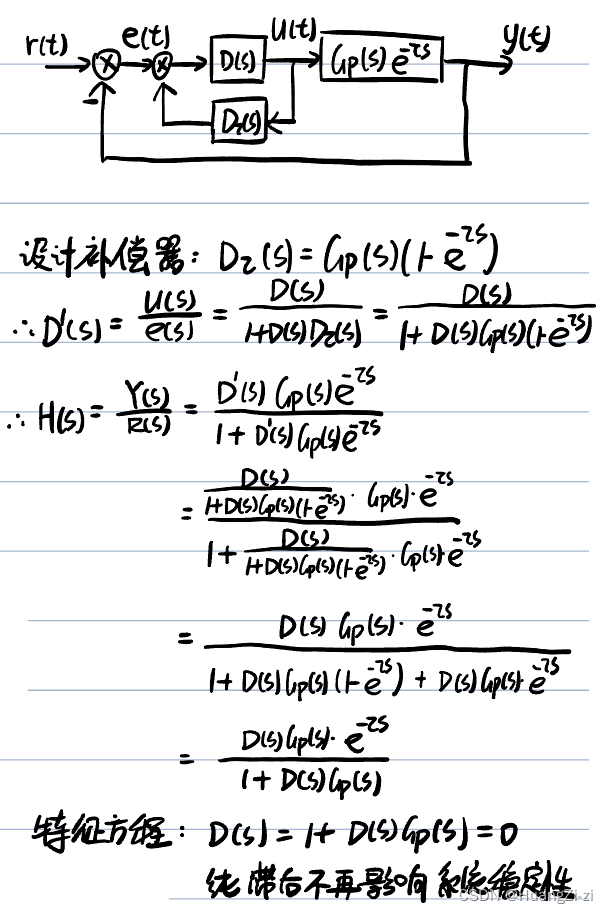 r(t) e(t) D(s) U(t) Gp(s) e^{-τs} y(t)
D₂(s)
设计补偿器: D₂(s) = Gp(s)(1-e^{-τs})
∴ D'(s) = U(s)/e(s) = D(s)/(1+D(s)D₂(s)) = D(s)/(1+D(s)Gp(s)(1-e^{-τs}))
∴ H(s) = Y(s)/R(s) = D'(s) Gp(s)e^{-τs}/(1+D'(s)Gp(s)e^{-τs})
= (D(s)/(1+D(s)Gp(s)(1-e^{-τs})) · Gp(s)·e^{-τs})/(1+D(s)/(1+D(s)Gp(s)(1-e^{-τs})) · Gp(s)·e^{-τs})
= D(s) Gp(s)·e^{-τs}/(1+D(s)Gp(s)(1-e^{-τs}) + D(s)Gp(s)·e^{-τs})
= D(s)Gp(s)·e^{-τs}/(1+D(s)Gp(s))
特征方程: D(s) = 1+ D(s)Gp(s) = 0
纯滞后不再影响系统稳定性
CSDN @HuangZi-zi